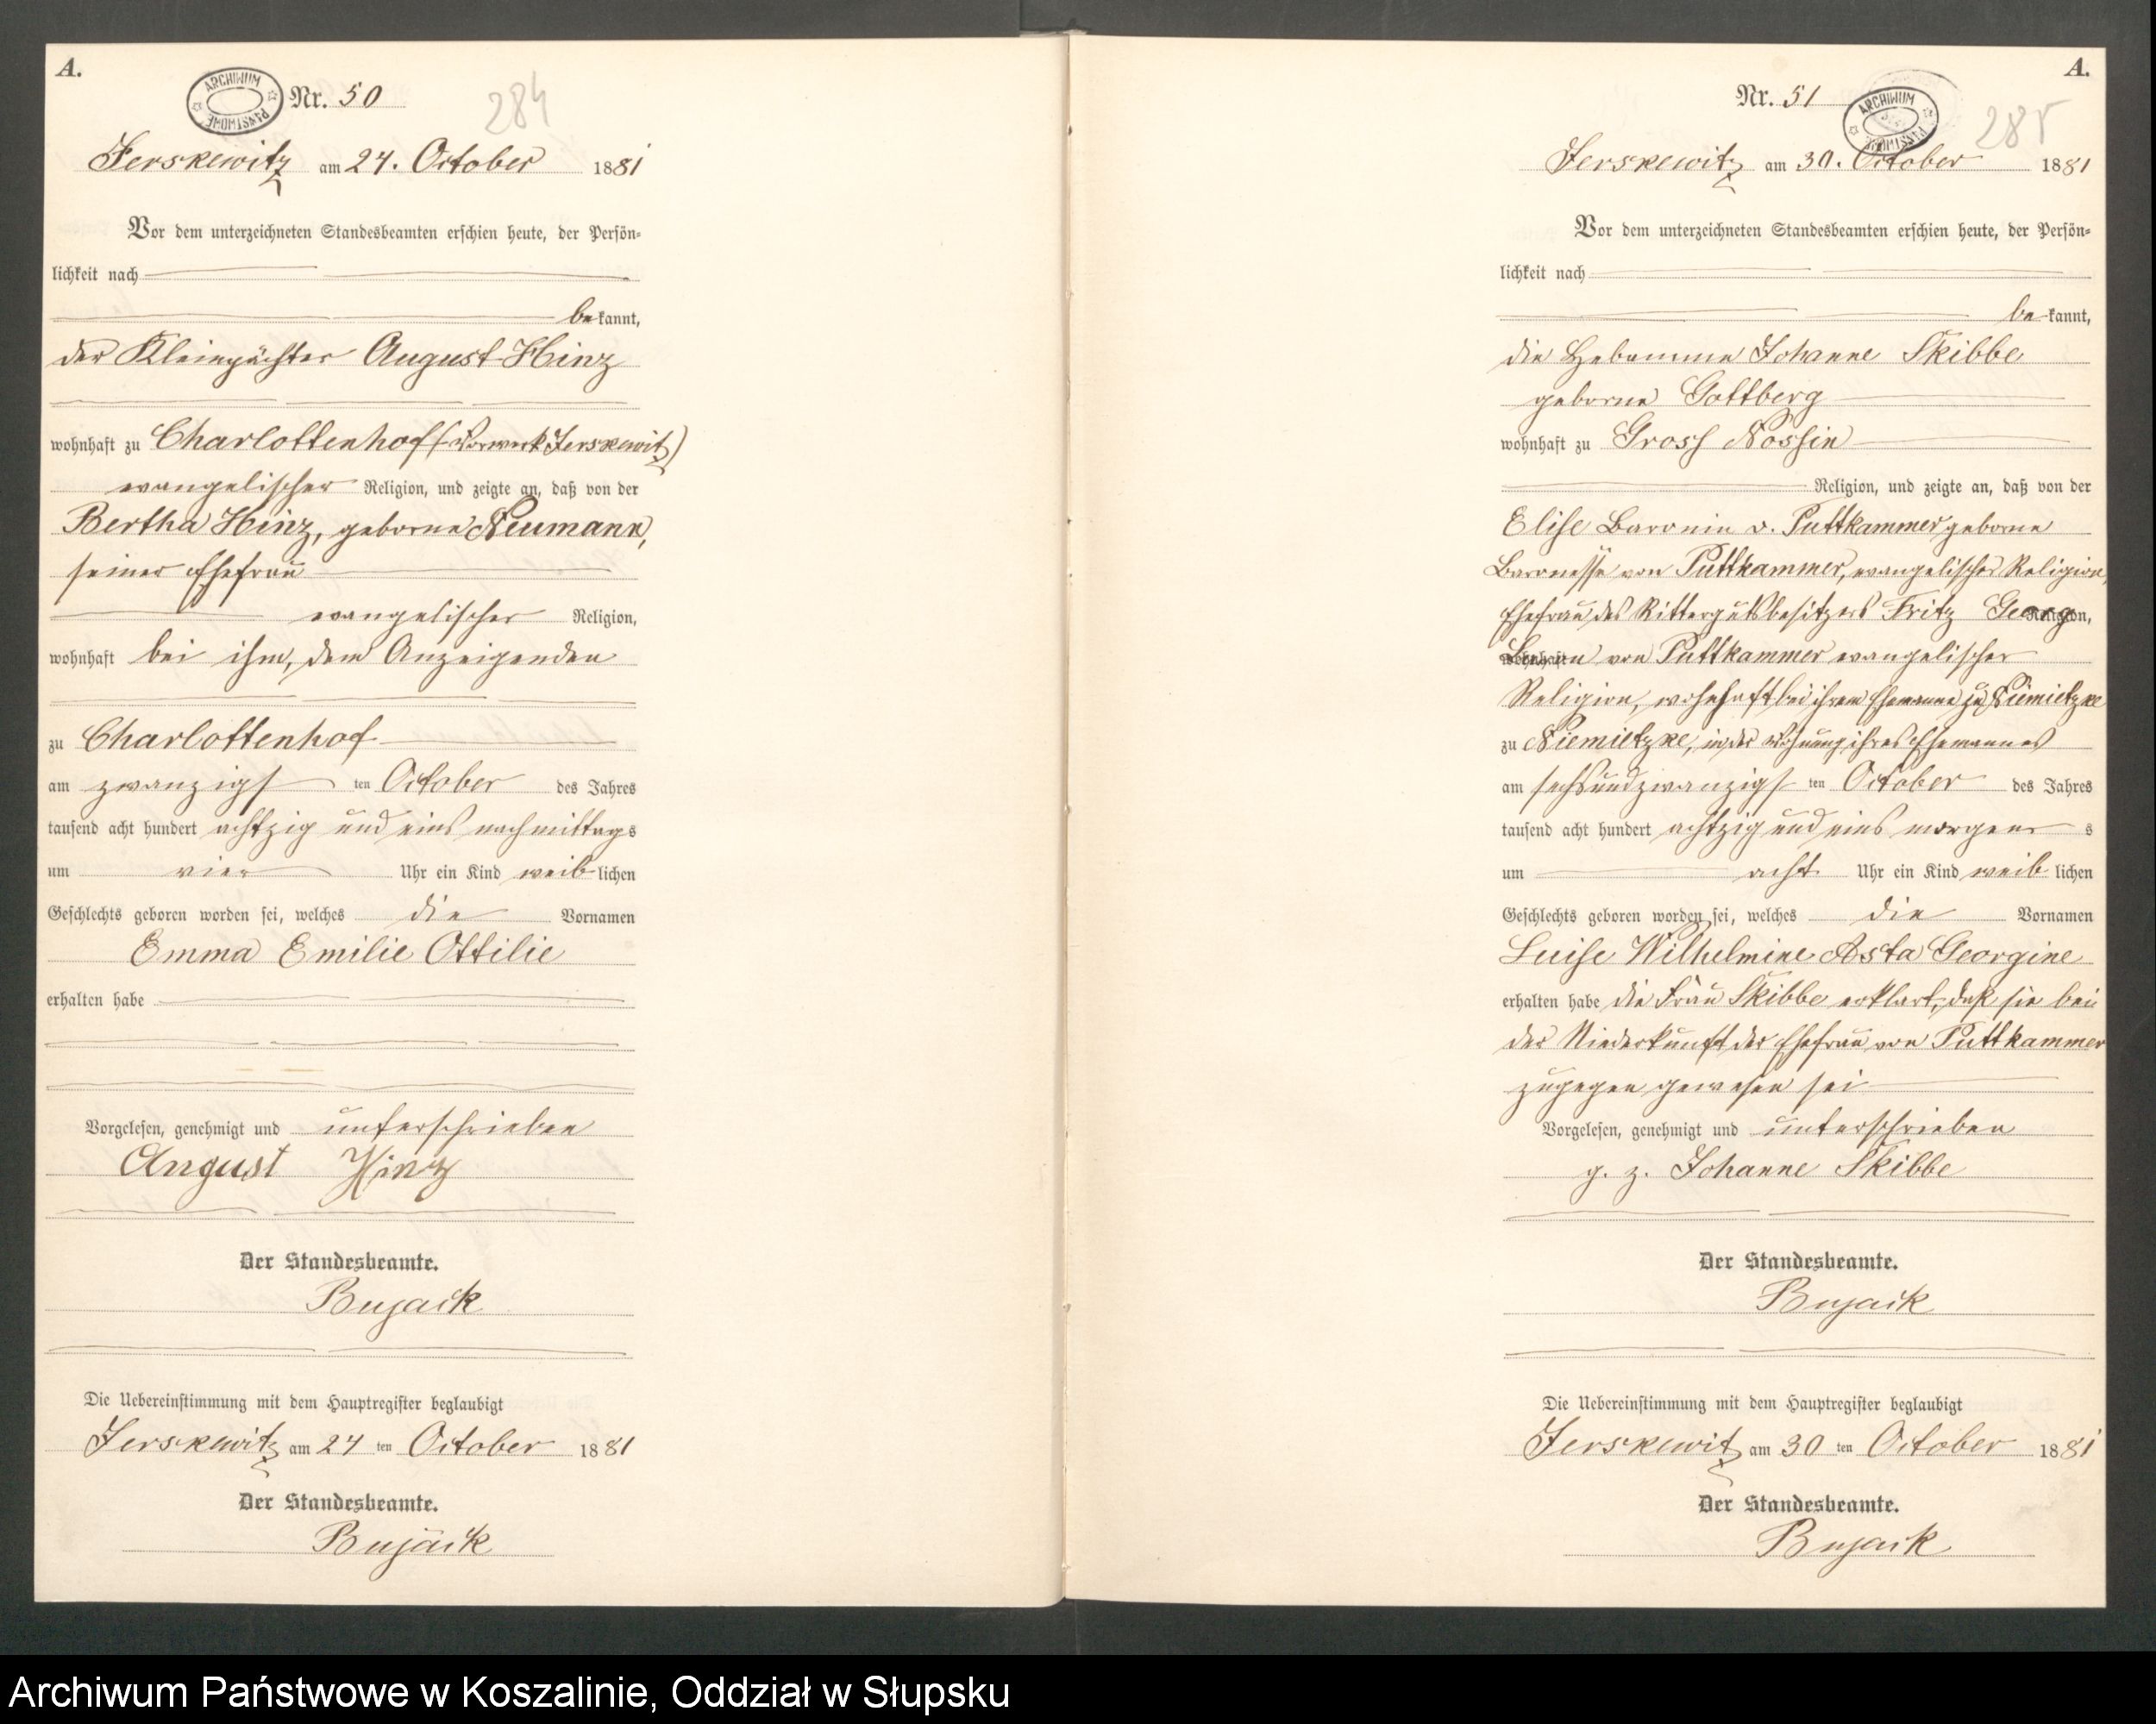 A.
ARCHIWUM PAŃSTWOWE
Nr. 50
284
Jerskewitz am 24. October 1881
Vor dem unterzeichneten Standesbeamten erschien heute, der Persön-
lichkeit nach
bekannt,
der Kleinpächter August Hinz
wohnhaft zu Charlottenhof (Vorwerk Jerskewitz)
evangelischer Religion, und zeigte an, daß von der
Bertha Hinz, geborne Neumann,
seiner Ehefrau
evangelischer Religion,
wohnhaft bei ihm, dem Anzeigenden
zu Charlottenhof
am zwanzigsten October des Jahres
tausend acht hundert achtzig und eins nachmittags
um vier Uhr ein Kind weiblichen
Geschlechts geboren worden sei, welches die Vornamen
Emma Emilie Ottilie
erhalten habe
Vorgelesen, genehmigt und unterschrieben
August Hinz
Der Standesbeamte.
Bujack
Die Uebereinstimmung mit dem Hauptregister beglaubigt
Jerskewitz am 24 ten October 1881
Der Standesbeamte.
Bujack
A.
Nr. 51
ARCHIWUM PAŃSTWOWE
285
Jerskewitz am 30. October 1881
Vor dem unterzeichneten Standesbeamten erschien heute, der Persön-
lichkeit nach
bekannt,
die Hebamme Johanne Skibbe
geborne Gottberg
wohnhaft zu Gross Nossin
Religion, und zeigte an, daß von der
Elise Baronin v. Puttkammer geborne
Baronesse von Puttkammer, evangelischer Religion,
Ehefrau des Rittergutsbesitzers Fritz Georg Religion,
wohnhaft von Puttkammer evangelischer
Religion, wohnhaft bei ihrem Ehemanne zu Niemietzke
zu Niemietzke, in der Wohnung ihres Ehemannes
am sechsundzwanzigsten October des Jahres
tausend acht hundert achtzig und eins morgens
um acht Uhr ein Kind weiblichen
Geschlechts geboren worden sei, welches die Vornamen
Luise Wilhelmine Asta Georgine
erhalten habe die Frau Skibbe erklärt, daß sie bei
der Niederkunft der Ehefrau von Puttkammer
zugegen gewesen sei
Vorgelesen, genehmigt und unterschrieben
g. z. Johanne Skibbe
Der Standesbeamte.
Bujack
Die Uebereinstimmung mit dem Hauptregister beglaubigt
Jerskewitz am 30 ten October 1881
Der Standesbeamte.
Bujack
Archiwum Państwowe w Koszalinie, Oddział w Słupsku